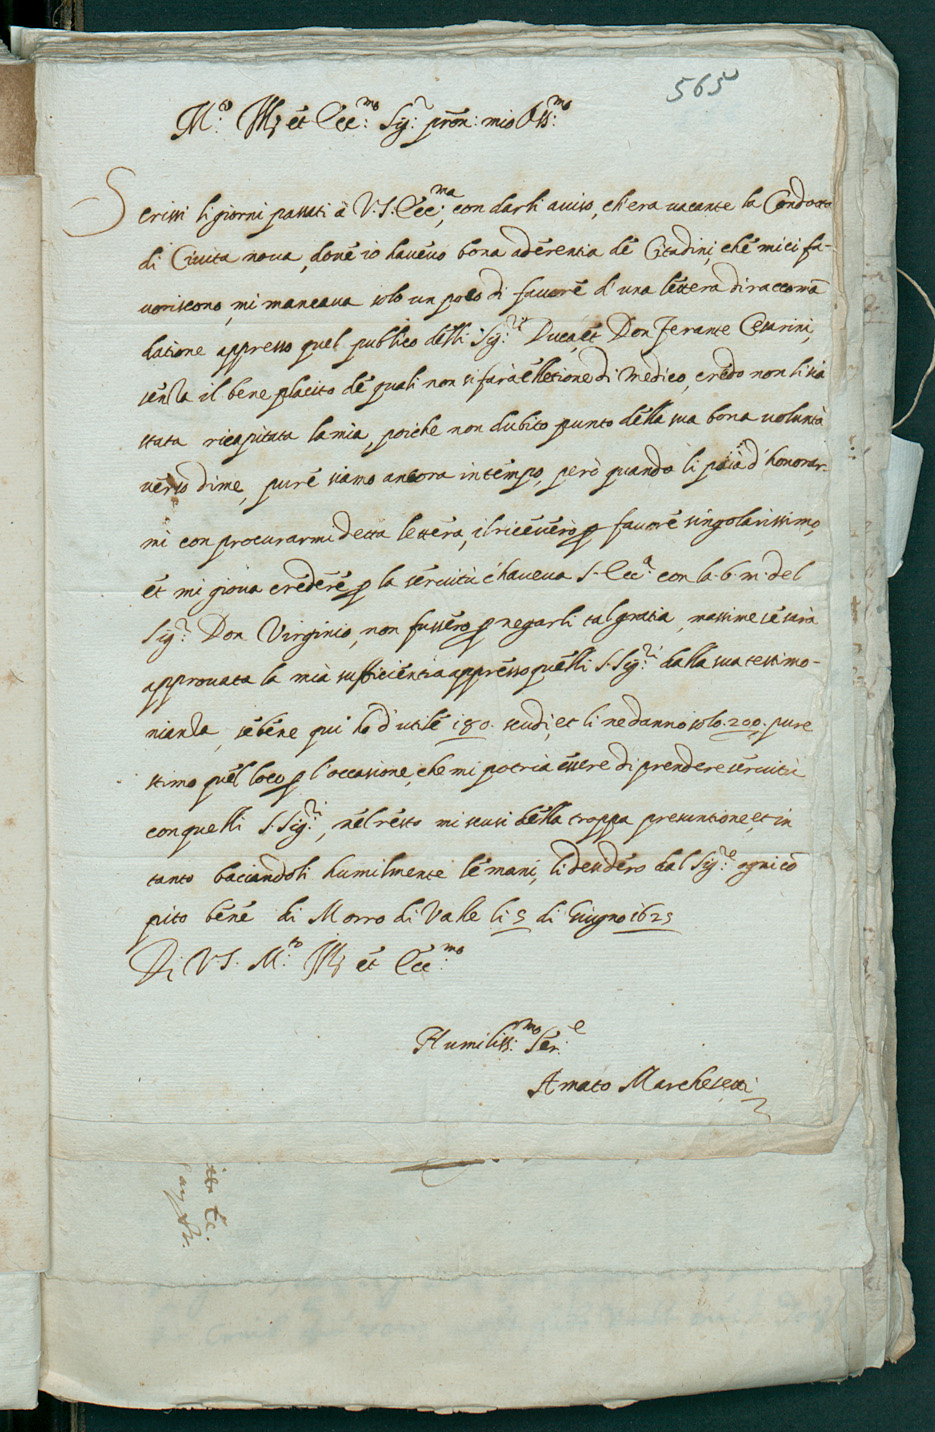 565
M.to Ill.re et Ecc.mo Sig.r pron: mio Oss.mo
Scrissi li giorni passati à V.S. Ecc.ma, con darli auiso, ch'era uacante la Condotta
di Ciuita noua, doue io haueuo bona aderentia de Citadini, che mi ci fa-
uoriscono, mi mancaua solo un poco di fauore d'una lettera di raccomā
datione appresso quel publico delli Sig.ri Duca, et Don Ferante Cesarini,
senza il bene placito de quali non si farà elletione di Medico, credo non li sia
stata ricapitata la mia, poiche non dubito punto della sua bona uoluntà
uerso di me, pure siamo ancora in tempo, però quando li paia d'honorar-
mi con procurarmi detta lettera, il riceuerò ꝑ fauore singolarissimo,
et mi gioua credere ꝑ la seruitù c'haueua S. Ecc.a con la b. m. del
Sig.r Don Virginio, non fussero ꝑ negarli tal gratia, massime se sarà
approuata la mia sufficientia appresso quelli S.Sig.ri dalla sua testimo-
nianza, se bene qui hò d'utile 180. scudi, et li ne danno solo. 200. pure
stimo quel loco ꝑ l'occasione, che mi potria essere di prendere seruitù
con quelli S.Sig.ri, nel resto mi scusi della troppa presuntione, et in
tanto baciandoli humilmente le mani, li desidero dal Sig.re ogni cō
pito bene di Morro di Valle li 5 di Giugno 1625
Di V.S. M.to Ill.re et Ecc.mo
Humiliss.mo Ser.e
Amato Marchesetti